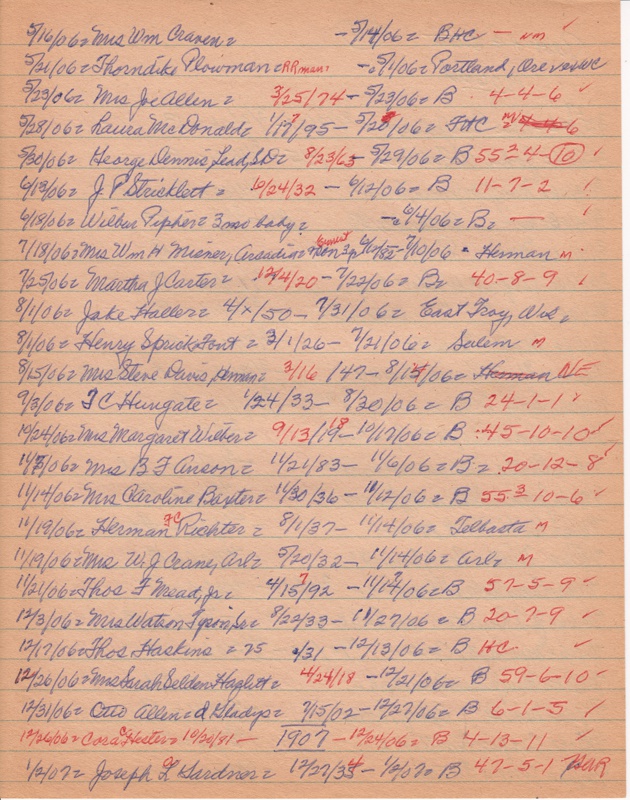 5/16/06= Mrs Wm Craven= - 5/14/06= BHC - NM ✓
5/21/06= Thorndike Plowman= RRman= -= 5/1/06= Portland, Ore
5/23/06= Mrs Joe Allen= 3/25/74 - 5/23/06= B 4-4-6 ✓
5/28/06= Laura McDonald= 1/17/95 - 5/28/06= FHC 4-4-6
5/30/06= George Dennis, Lead, SD= 8/23/63 - 5/29/06= B 55 2-4-10 ✓
6/13/06= J P Stricklett= 6/24/32 - 6/12/06= B 11-7-2 ✓
6/18/06= Wilbur Pipher= 3 mo baby= -= 6/4/06= B= — ✓
7/18/06= Mrs Wm H Miener, Arcadia= Ernest 6/10/82- 7/10/06= Herman M
7/25/06= Martha J Carter= 12/4/20 - 7/22/06= B= 40-8-9 ✓
8/1/06= Jake Haller= 4/x/50 - 7/31/06= East Troy, Wis=
8/1/06= Henry Sprick Font= 3/1/26 - 7/21/06= Salem M
8/15/06= Mrs Steve Davis, Herman= 3/16/47 - 8/14/06= Herman NE
9/3/06= F C Hungate= 1/24/33 - 8/20/06= B 24-1-1 ✓
10/24/06= Mrs Margaret Wilber= 9/13/19 18 - 10/17/06= B 45-10-10 ✓
11/7/06= Mrs B F Anson= 11/21/83 - 11/6/06= B= 20-12-8 ✓
11/14/06= Mrs Caroline Baxter= 11/30/36 - 11/12/06= B 55 3-10-6 ✓
11/19/06= Herman FC Richter= 8/1/37 - 11/14/06= Telbasta M
11/19/06= Mrs W. J Crane, Arl= 5/20/32 - 11/14/06= Arl= M
11/21/06= Thos F Mead, Jr= 4/15/92 7 - 11/14/06= B 57-5-9 ✓
12/3/06= Mrs Watson Tyson, Sr= 8/22/33 - 11/27/06= B 20-7-9 ✓
12/17/06= Thos Haskins = 75 /31 - 12/13/06= B HC ✓
12/26/06= Mrs Sarah Selden Haslett= 4/24/18 - 12/21/06= B 59-6-10 ✓
12/31/06= Otto Allen= d Gladys= 7/15/02 - 12/27/06= B 6-1-5 ✓
12/26/06= Cora C Hester= 10/20/81 - 1907 - 12/24/06= B 4-13-11 ✓
1/2/07= Joseph L Gardner= 12/27/35 4 - 1/2/07= B 47-5-1 ✓